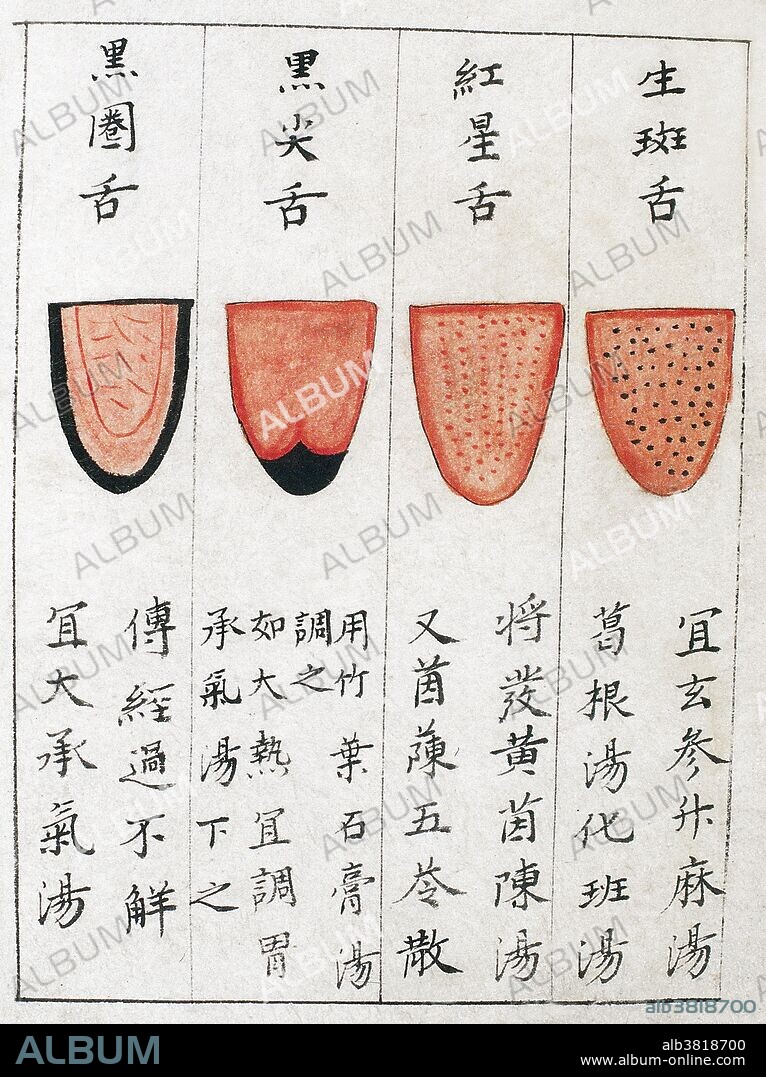 生斑舌
宜玄參升麻湯
葛根湯化班湯
紅星舌
将發黄茵陳湯
又茵蔯五苓散
黒尖舌
用竹葉石膏湯
調之
如大熱宜調胃
承氣湯下之
黒圈舌
傳經過不解
宜大承氣湯
ALBUM
alb3818700
ALBUM
alb3818700
www.album-online.com